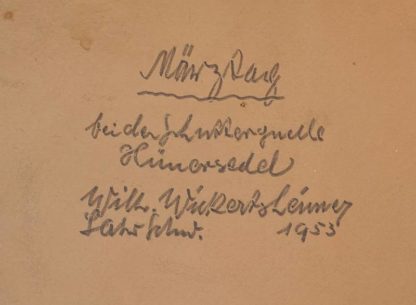 Märztag
bei der Schutterquelle
Hünersedel
Wilh. Wickertsheimer
Lahr Schw. 1953